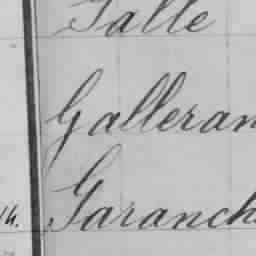 Galle
Galleran
14. Garanch